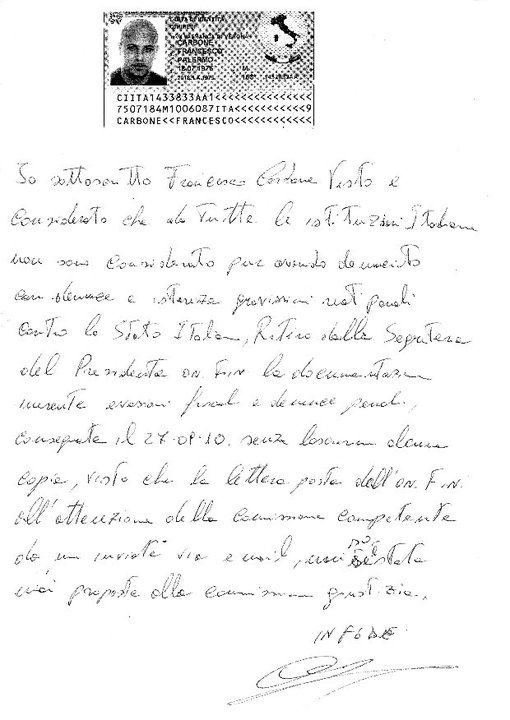 CARTA D'IDENTITÀ
CARBONE
FRANCESCO
PALERMO
18.07.1975 M
CIITA1433833AA1<<<<<<<<<<<<<<<
7507184M1006087ITA<<<<<<<<<<<9
CARBONE<<FRANCESCO<<<<<<<<<<<<
Io sottoscritto Francesco Carbone Visto e
Considerato che da tutte le istituzioni Italiane
non sono Considerato pur avendo denunciato
con denunce e istanze gravissimi reati penali
contro lo Stato Italiano, Ritiro dalla Segreteria
del Presidente on. Fini la documentazione
inerente evasioni fiscali e denunce penali,
consegnata il 27-09-10. senza lasciarne alcuna
copia, visto che la lettera posta dell'on. Fini
all'attenzione della Commissione competente
da me inviata via e mail, non è stata
mai proposta alla commissione giustizia.
IN FEDE